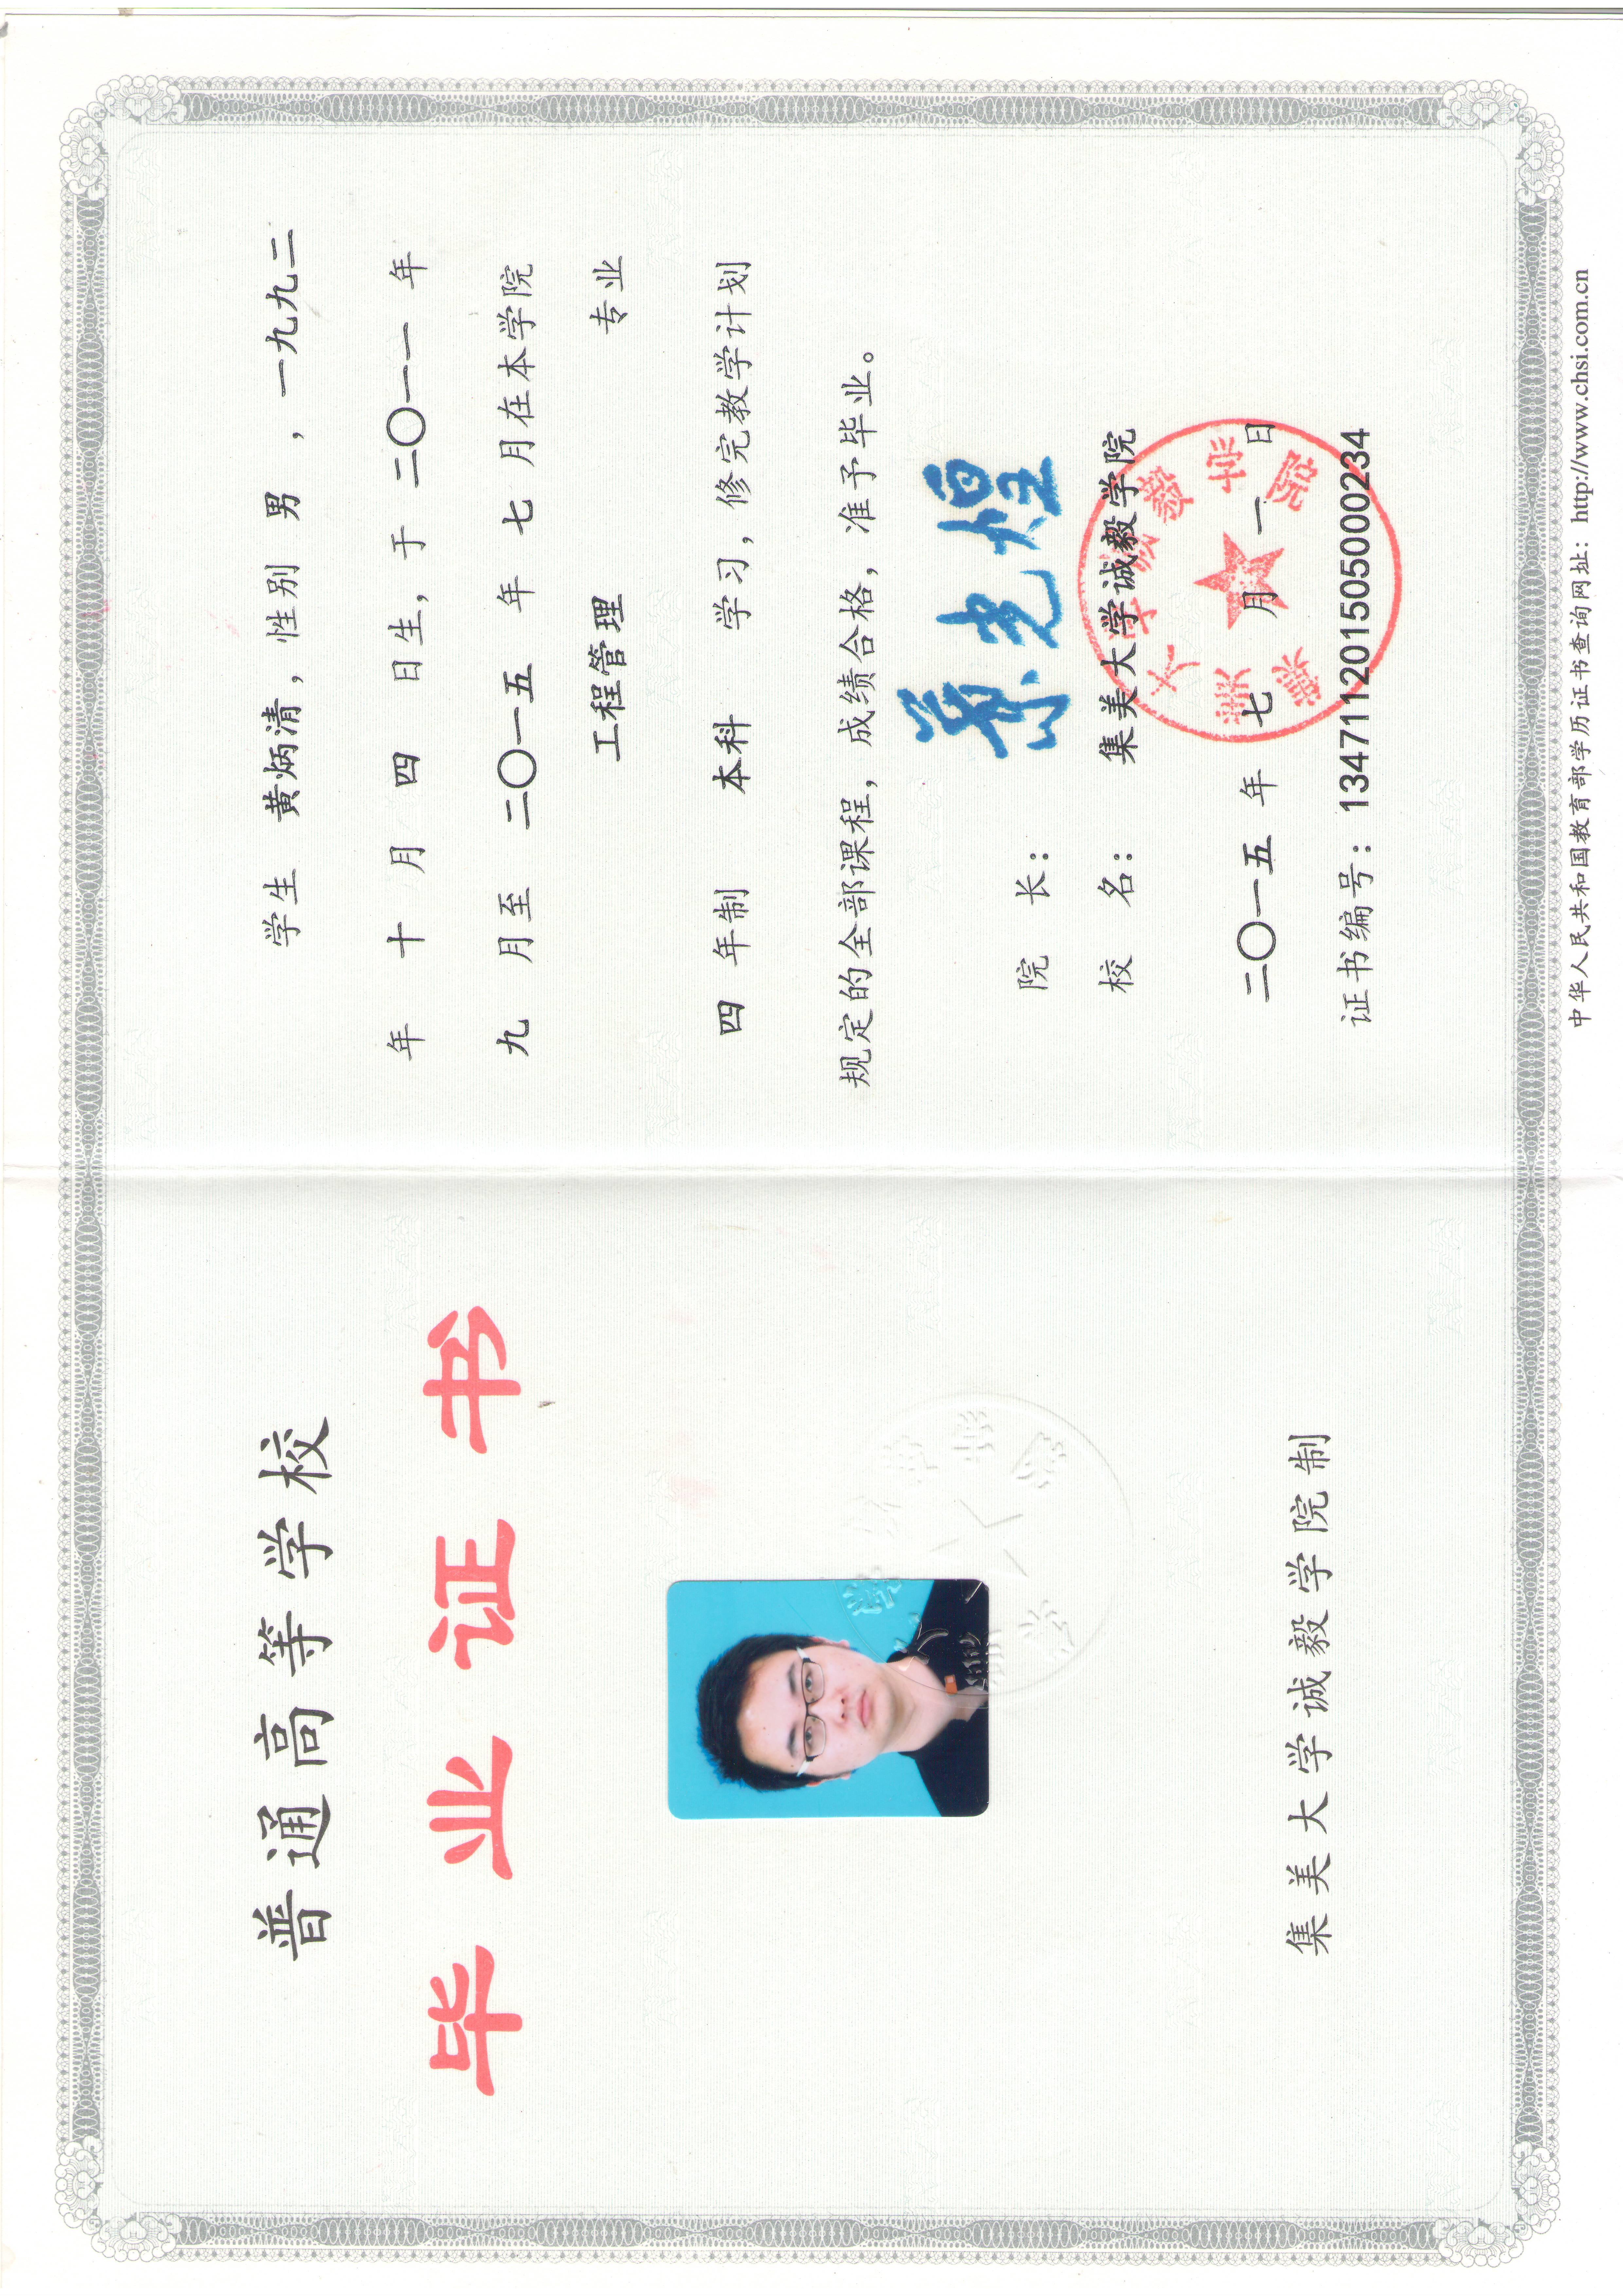 普通高等学校
毕业证书
集美大学诚毅学院制
学生 黄炳清，性别 男 ，一九九二
年 十 月 四 日生，于 二〇一一 年
九 月至 二〇一五 年 七 月在本学院
工程管理 专业
四 年制 本科 学习，修完教学计划
规定的全部课程，成绩合格，准予毕业。
院 长：
校 名： 集美大学诚毅学院
二〇一五 年 七 月 一 日
证书编号：134711201505000234
中华人民共和国教育部学历证书查询网址：http://www.chsi.com.cn
集美大学诚毅学院